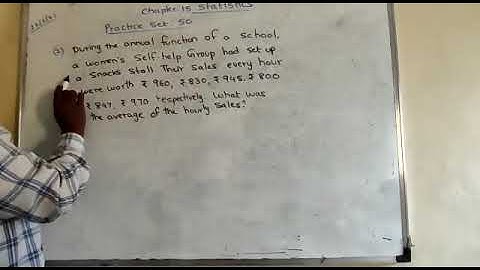 Chapter 15 Statistics
Practice Set 50
(2) During the annual function of a school,
a women's Self-help Group had set up
a Snacks Stall Their Sales every hour
were worth ₹ 960, ₹ 830, ₹ 945, ₹ 800
₹ 847, ₹ 970 respectively. What was
the average of the hourly Sales?